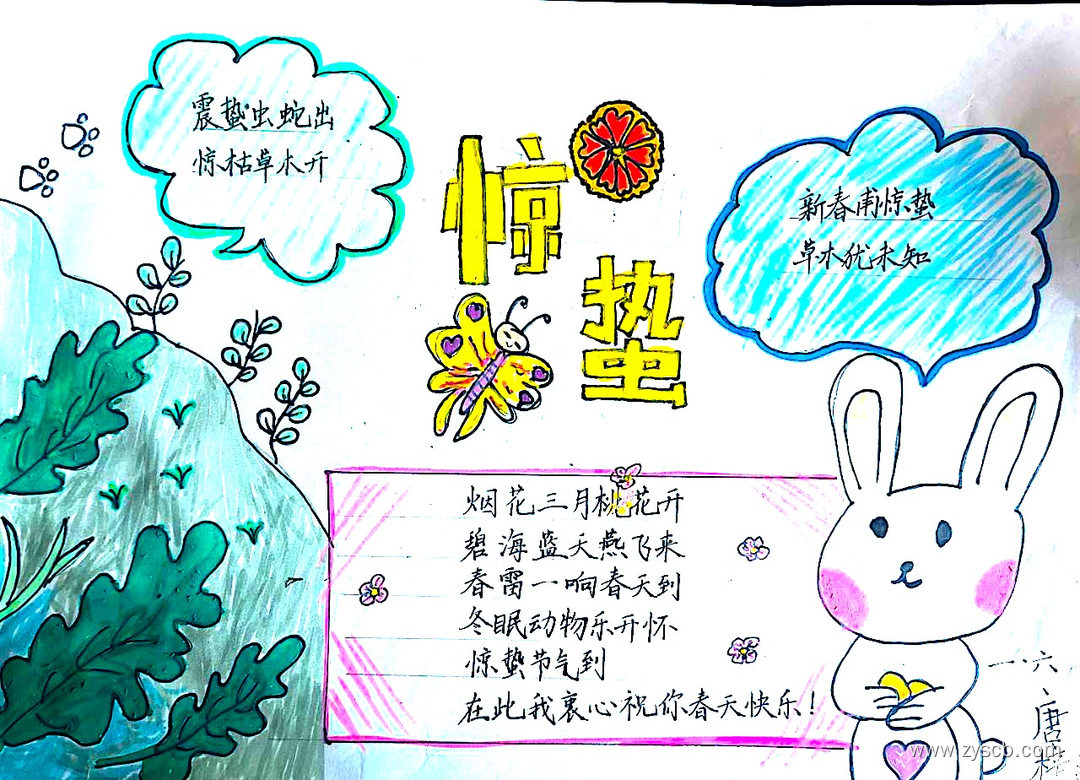 震蛰虫蛇出
惊枯草木开
惊蛰
新春甫惊蛰
草木犹未知
烟花三月桃花开
碧海蓝天燕飞来
春雷一响春天到
冬眠动物乐开怀
惊蛰节气到
在此我衷心祝你春天快乐!
一·六
唐
www.zysco.com